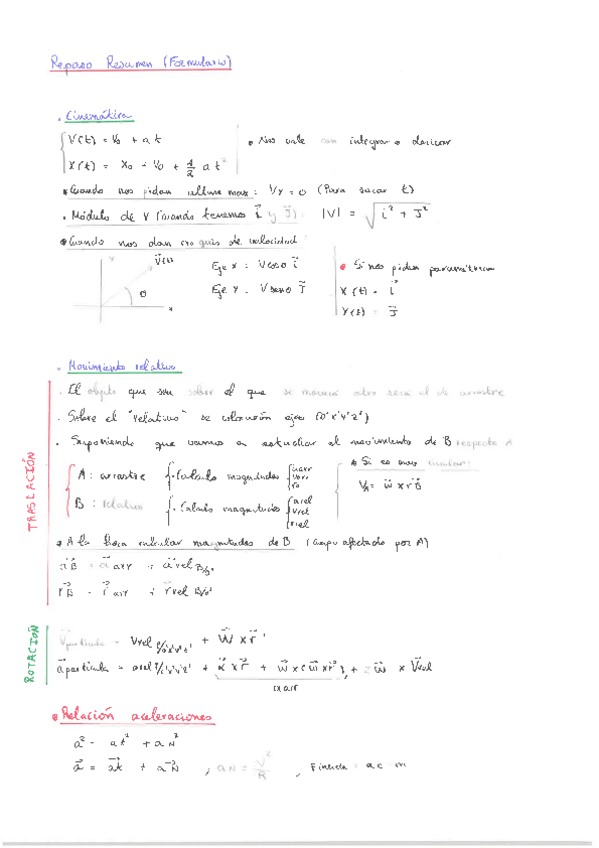 Repaso Resumen (Formulario)
. Cinemática
V(t) = V0 + a t
• Nos vale con integrar o derivar
X(t) = X0 + V0 + 1/2 a t²
• Cuando nos pidan altura max: Vy = 0 (Para sacar t)
. Módulo de V (cuando tenemos i⃗ y J⃗): |V| = √(i² + J²)
• Cuando nos dan de velocidad
Y V⃗(t) θ x
Eje X: V cosθ i⃗
Eje Y: V senθ J⃗
• Si nos piden paramétricas
X(t) = i⃗
Y(t) = J⃗
. Movimiento relativo
TRASLACIÓN
. El objeto que sea sobre el que se mueva otro será el de arrastre
. Sobre el "relativo" se colocarán ejes (0'x'y'z')
. Suponiendo que vamos a estudiar el movimiento de B respecto A
A: arrastre . Calculo magnitudes aarr varr
B: relativo . Calculo magnitudes arel vrel rrel
• Si es mov circular:
w⃗ x r⃗
• A la hora calcular magnitudes de B (Campo afectado por A)
a⃗B = a⃗ arr + a⃗rel B/0'
r⃗B = r⃗ arr + r⃗rel B/0'
ROTACIÓN
V⃗partícula = Vrel P/0'x'y'z' + W⃗ x r⃗'
a⃗partícula = arel P/0'x'y'z' + α⃗ x r⃗ + w⃗ x (w⃗ x r⃗') + 2 w⃗ x V⃗rel
a arr
• Relación aceleraciones
a² = at² + aN²
a⃗ = a⃗t + a⃗N , aN = V²/R ,